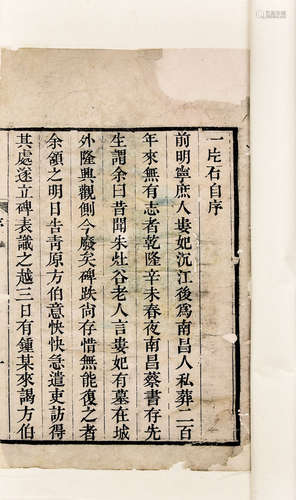 一片石自序
前明寧庶人婁妃沉江後為南昌人私葬二百
年來無有志者乾隆辛未春夜南昌蔡書存先
生謂余曰昔聞朱赴谷老人言婁妃有墓在城
外隆興觀側今廢矣碑趺尚存惜無能復之者
余領之明日告青原方伯意怏怏急遣吏訪得
其處遂立碑表識之越三日有鍾某來謁方伯